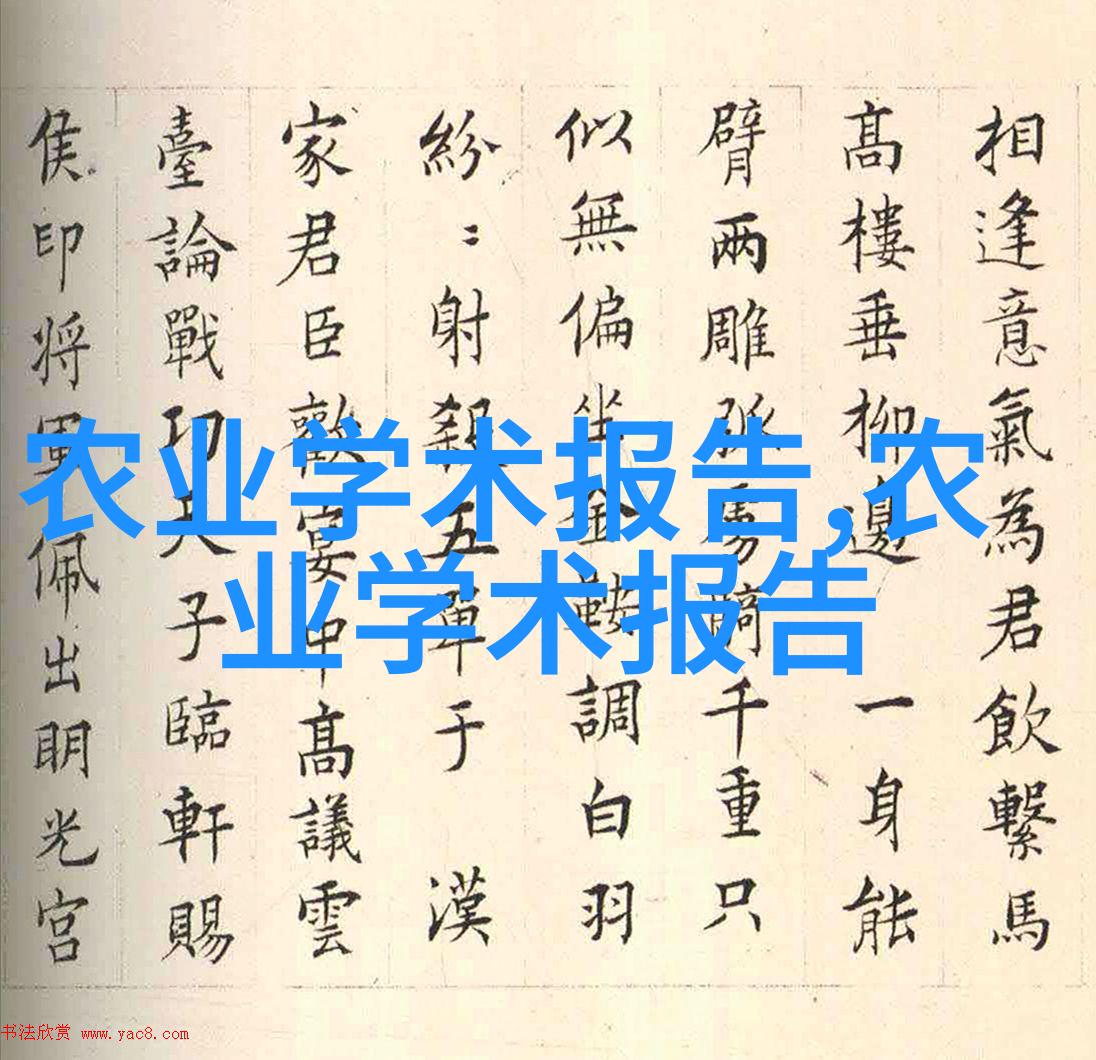 相逢意氣為君飲繫馬
髙樓垂柳邊 一身能
臂兩雕弧虜騎千重只
似無偏坐金鞍調白羽
紛〻射殺五單于 漢
家君臣歡宴中髙議雲
臺論戰功天子臨軒賜
侯印将軍佩出明光宮
农业学术报告,农
业学术报告
书法欣赏 www.yac8.com